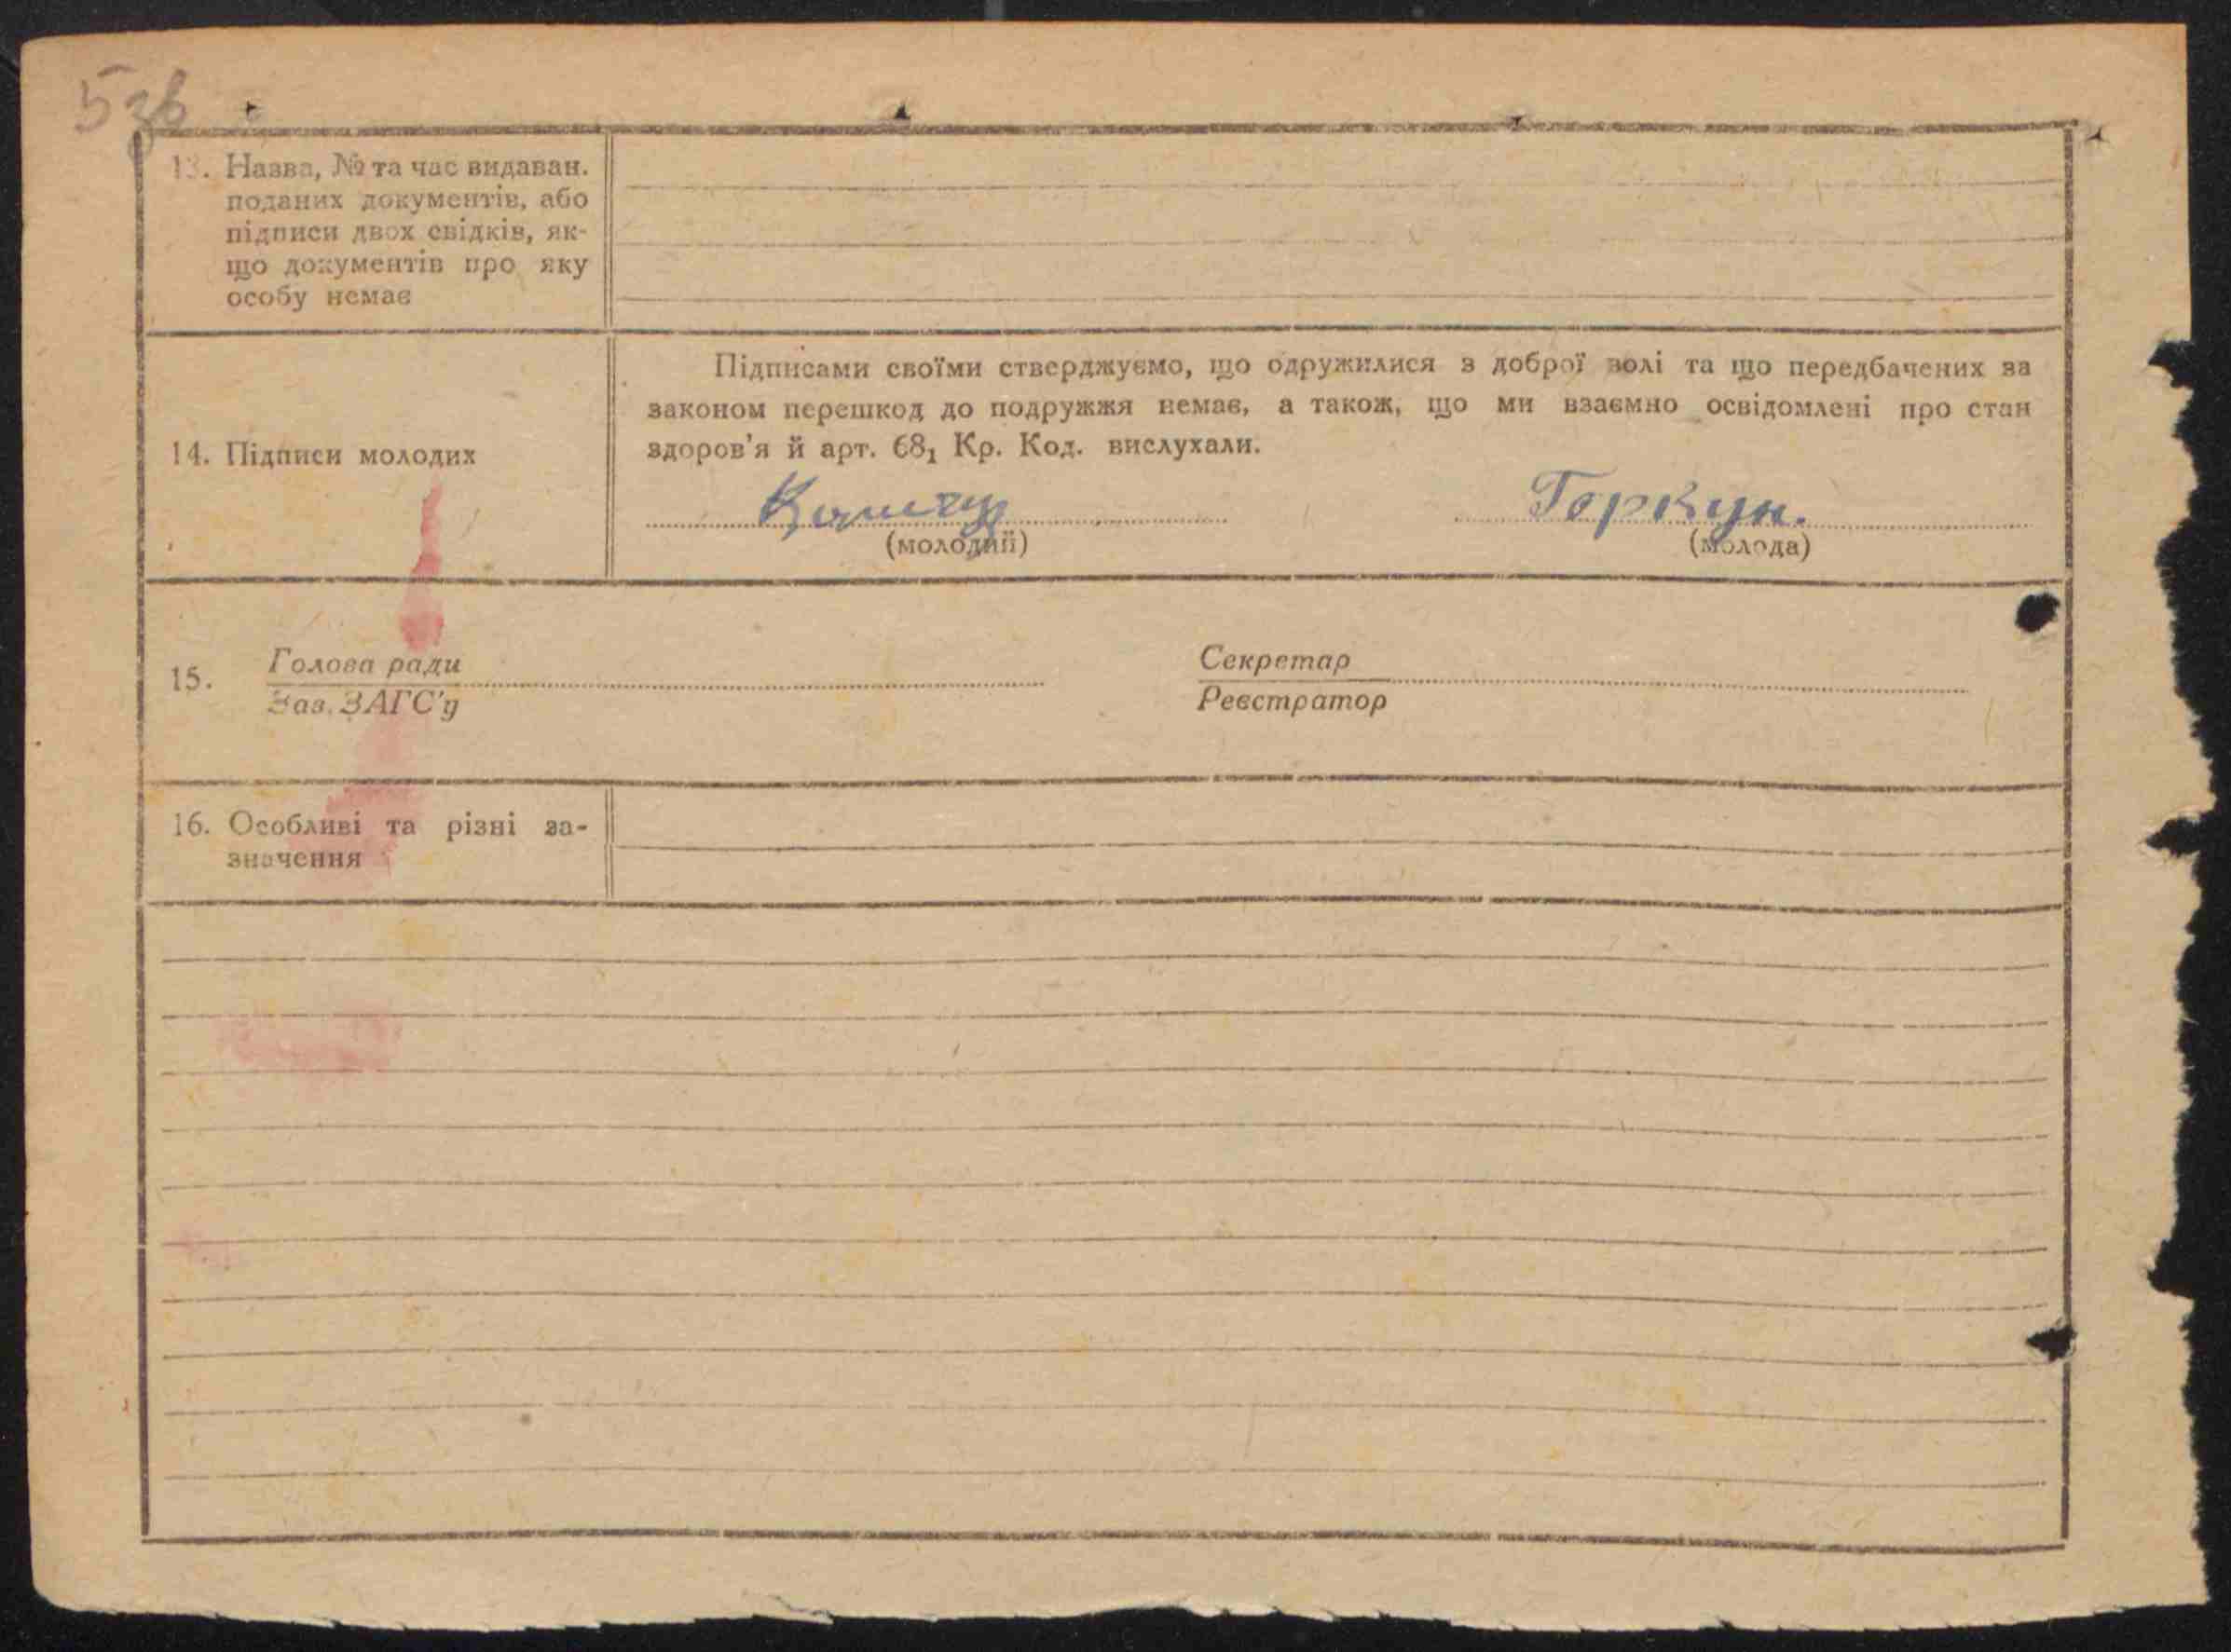 5зв
13. Назва, № та час видаван.
поданих документів, або
підписи двох свідків, як-
що документів про яку
особу немає
14. Підписи молодих
Підписами своїми стверджуємо, що одружилися з доброї волі та що передбачених за
законом перешкод до подружжя немає, а також, що ми взаємно освідомлені про стан
здоров'я й арт. 68₁ Кр. Код. вислухали.
Горкун.
(молодий) (молода)
15. Голова ради
Зав. ЗАГС'у
Секретар
Реєстратор
16. Особливі та різні за-
значення